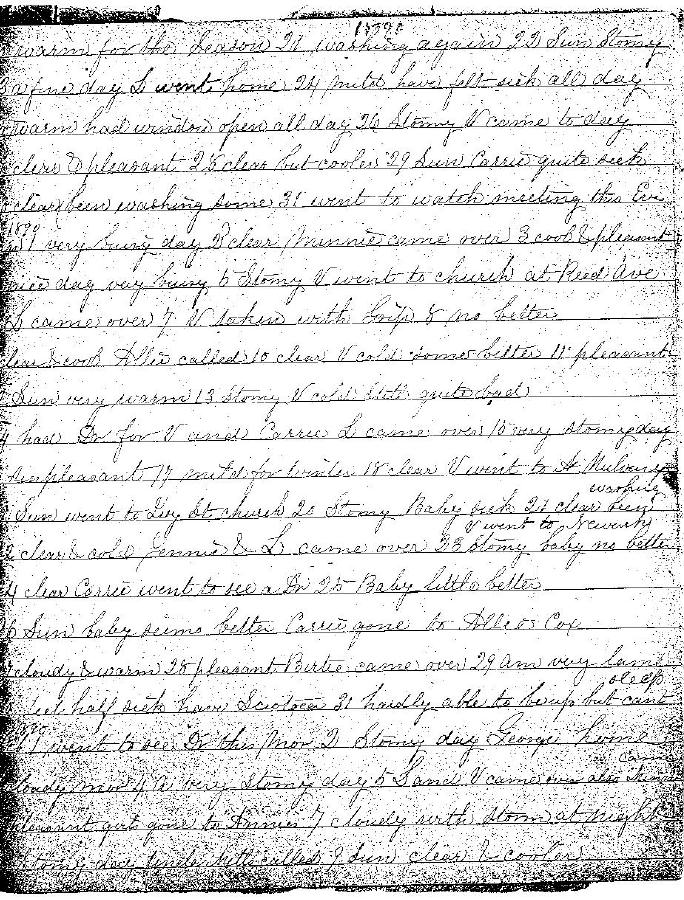 1889
warm for the Season 21 washing again 22 Sun Stomy
a fine day L went home 24 mild have felt sick all day
warm had window open all day 26 Stomy V came to day
clere & pleasant 28 clear but cooler 29 Sun Carrie quite sick
clear been washing some 31 went to watch meeting this Eve
1890
1 very busy day 2 clear Minnie came over 3 cool & pleasant
nice day very busy 5 Stomy V went to church at Reed Ave
L came over 7 V taken with Grip 8 no better
clear & cool Allie called 10 clear V cold some better 11 pleasant
Sun very warm 13 Stomy V cold still quite bad
had Dr for V and Carrie L came over 15 very stomy day
unpleasant 17 mild for winter 18 clear V went to A
washing
Sun went to St church 20 Stomy Baby sick 21 clear been
V went to Newark
clear & cold Jennie & L came over 23 Stomy baby no better
4 clear Carrie went to see a Dr 25 Baby little better
6 Sun baby seims better Carrie gone to Allie Cox
cloudy & warm 28 pleasant Bertie came over 29 am very lame
sleep
feel half sick have Sciatica 31 hardly able to be up but cant
1 went to see Dr this Mor 2 Stomy day George home
came
cloudy mor 4 a very stomy day 5 L and V came over also
pleasant girls gone to Annies 7 cloudy with storm at night
Stomy day called 9 Sun clear & cooler